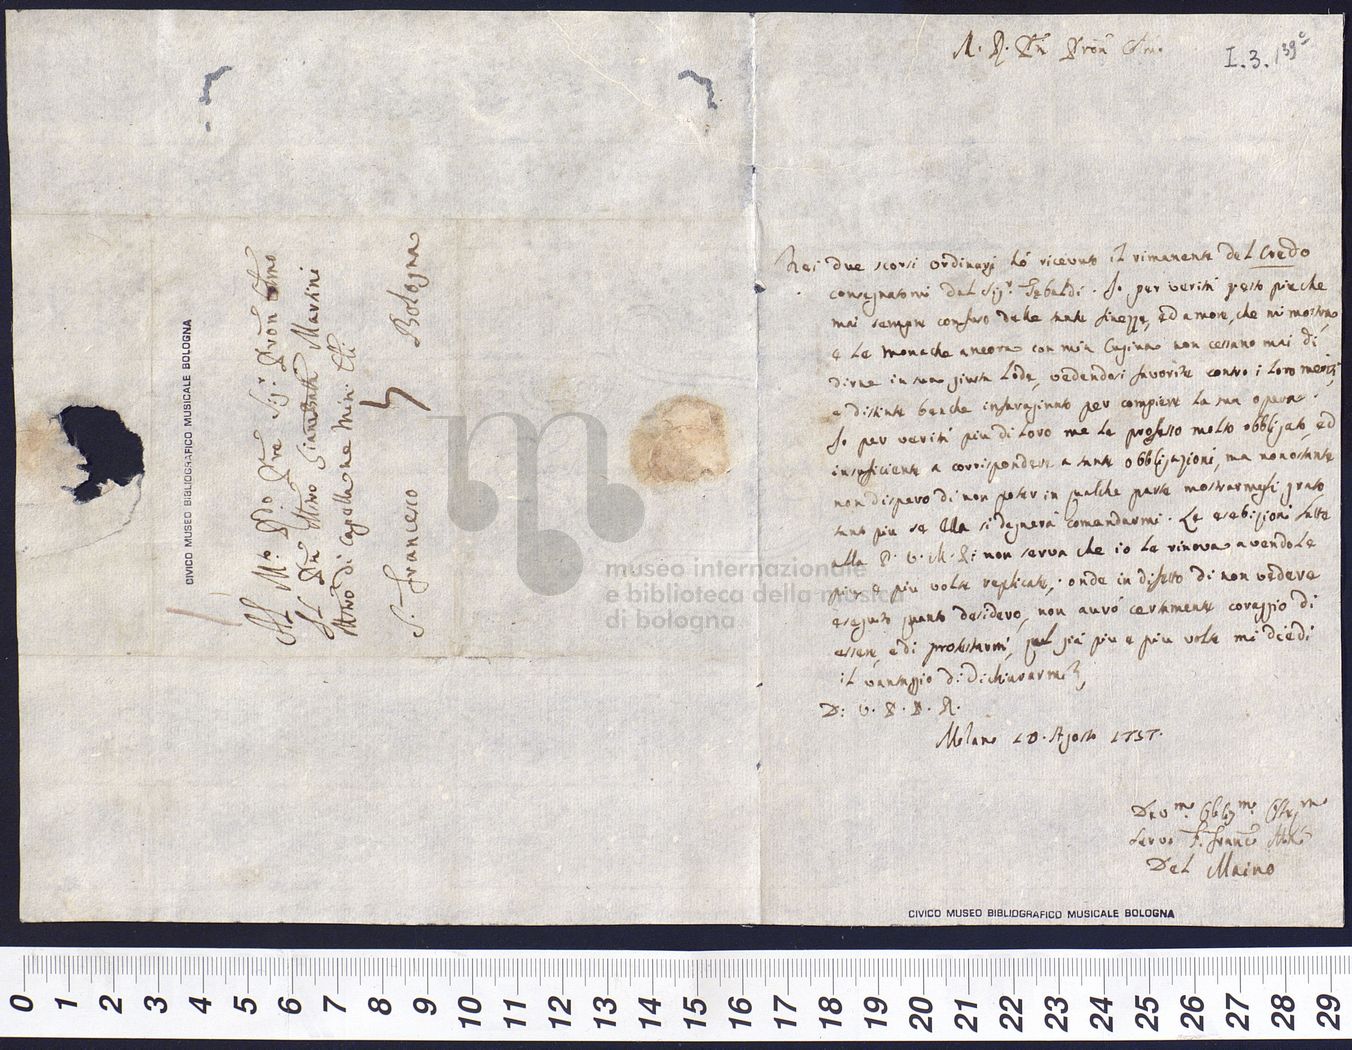 Al M.o Rdo Pre Sig.r Pron Colmo
Il Pre Mtro Giambatta Martini
Mtro di Capella ne Mini Cli
S. Francesco Bologna
CIVICO MUSEO BIBLIOGRAFICO MUSICALE BOLOGNA
museo internazionale
e biblioteca della musica
di bologna
M. R. Pre Pron
I.3.139
Nei due scorsi ordinarj hò ricevuto il rimanente del Credo
consegnatomi dal Sig.r Tebaldi. Io per verità resto più che
mai sempre confuso dalle tante finezze, ed amore, che mi mostra,
e le Monache ancora con mia Cugina non cessano mai di
dirne in sua giusta lode, vedendosi favorite contro i loro meriti,
e distinte benche infraginato per compiere la sua opera.
Io per verità più di loro me le professo molto obbligato, ed
insuficiente a corrispondere a tante obbligazioni, ma nonostante
non dispero di non poter in qualche parte mostrarmegli grato
tanto più se Ella si degnerà comandarmi. Le esebizioni fatte
alla P. V. M. R: non serva che io le rinova avendole
più e più volte replicate, onde in difetto di non vedere
eseguito quanto desidero, non aurò certamente coraggio di
essere, e di protestarmi, qual già più e più volte mi diedi
il vantaggio di dichiararmeli,
D: V. P. M. R.
Milano 10. Agosto 1757.
Dev.mo Obblig.mo
Servo F. Franc.o
Del Maino
CIVICO MUSEO BIBLIOGRAFICO MUSICALE BOLOGNA
0 1 2 3 4 5 6 7 8 9 10 11 12 13 14 15 16 17 18 19 20 21 22 23 24 25 26 27 28 29